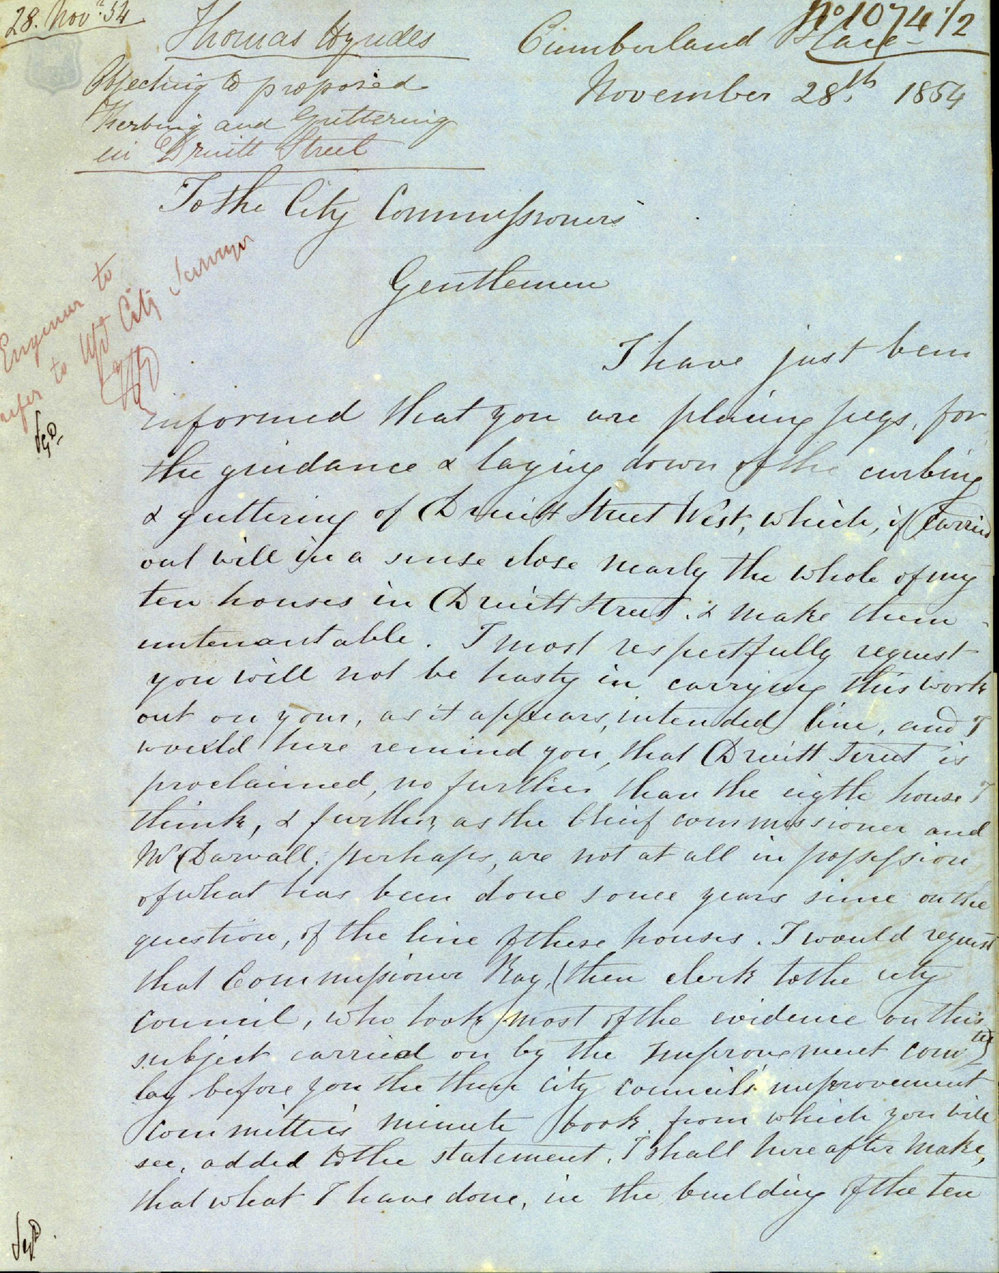 28. Novr. 54
No 1074 1/2
Thomas Hyndes
Objecting to proposed
Kerbing and Guttering
in Druitt Street
Cumberland Place
November 28th 1854
To the City Commissioners
Gentlemen
Engineer to
refer to City Surveyor
I have just been
informed that you are placing pegs, for
the guidance & laying down of the curbing
& guttering of Druitt Street West, which, if carried
out will in a sense close nearly the whole of my
ten houses in Druitt Street. & make them
untenantable. I most respectfully request
you will not be hasty in carrying this work
out on your, as it appears, intended line, and I
would here remind you, that Druitt Street is
proclaimed, no further than the eigth house I
think, & further, as the Chief commissioner and
Mr Darvall. perhaps, are not at all in possession
of what has been done some years since on the
question, of the line of these houses. I would request
that Commissioner Ray, (then clerk to the city
council, who took most of the evidence on this
subject carried on by the Improvement com
lay before you the then city council's improvement
committee's minute book from which you will
see, added to the statement. I shall hereafter make,
that what I have done, in the building of the ten